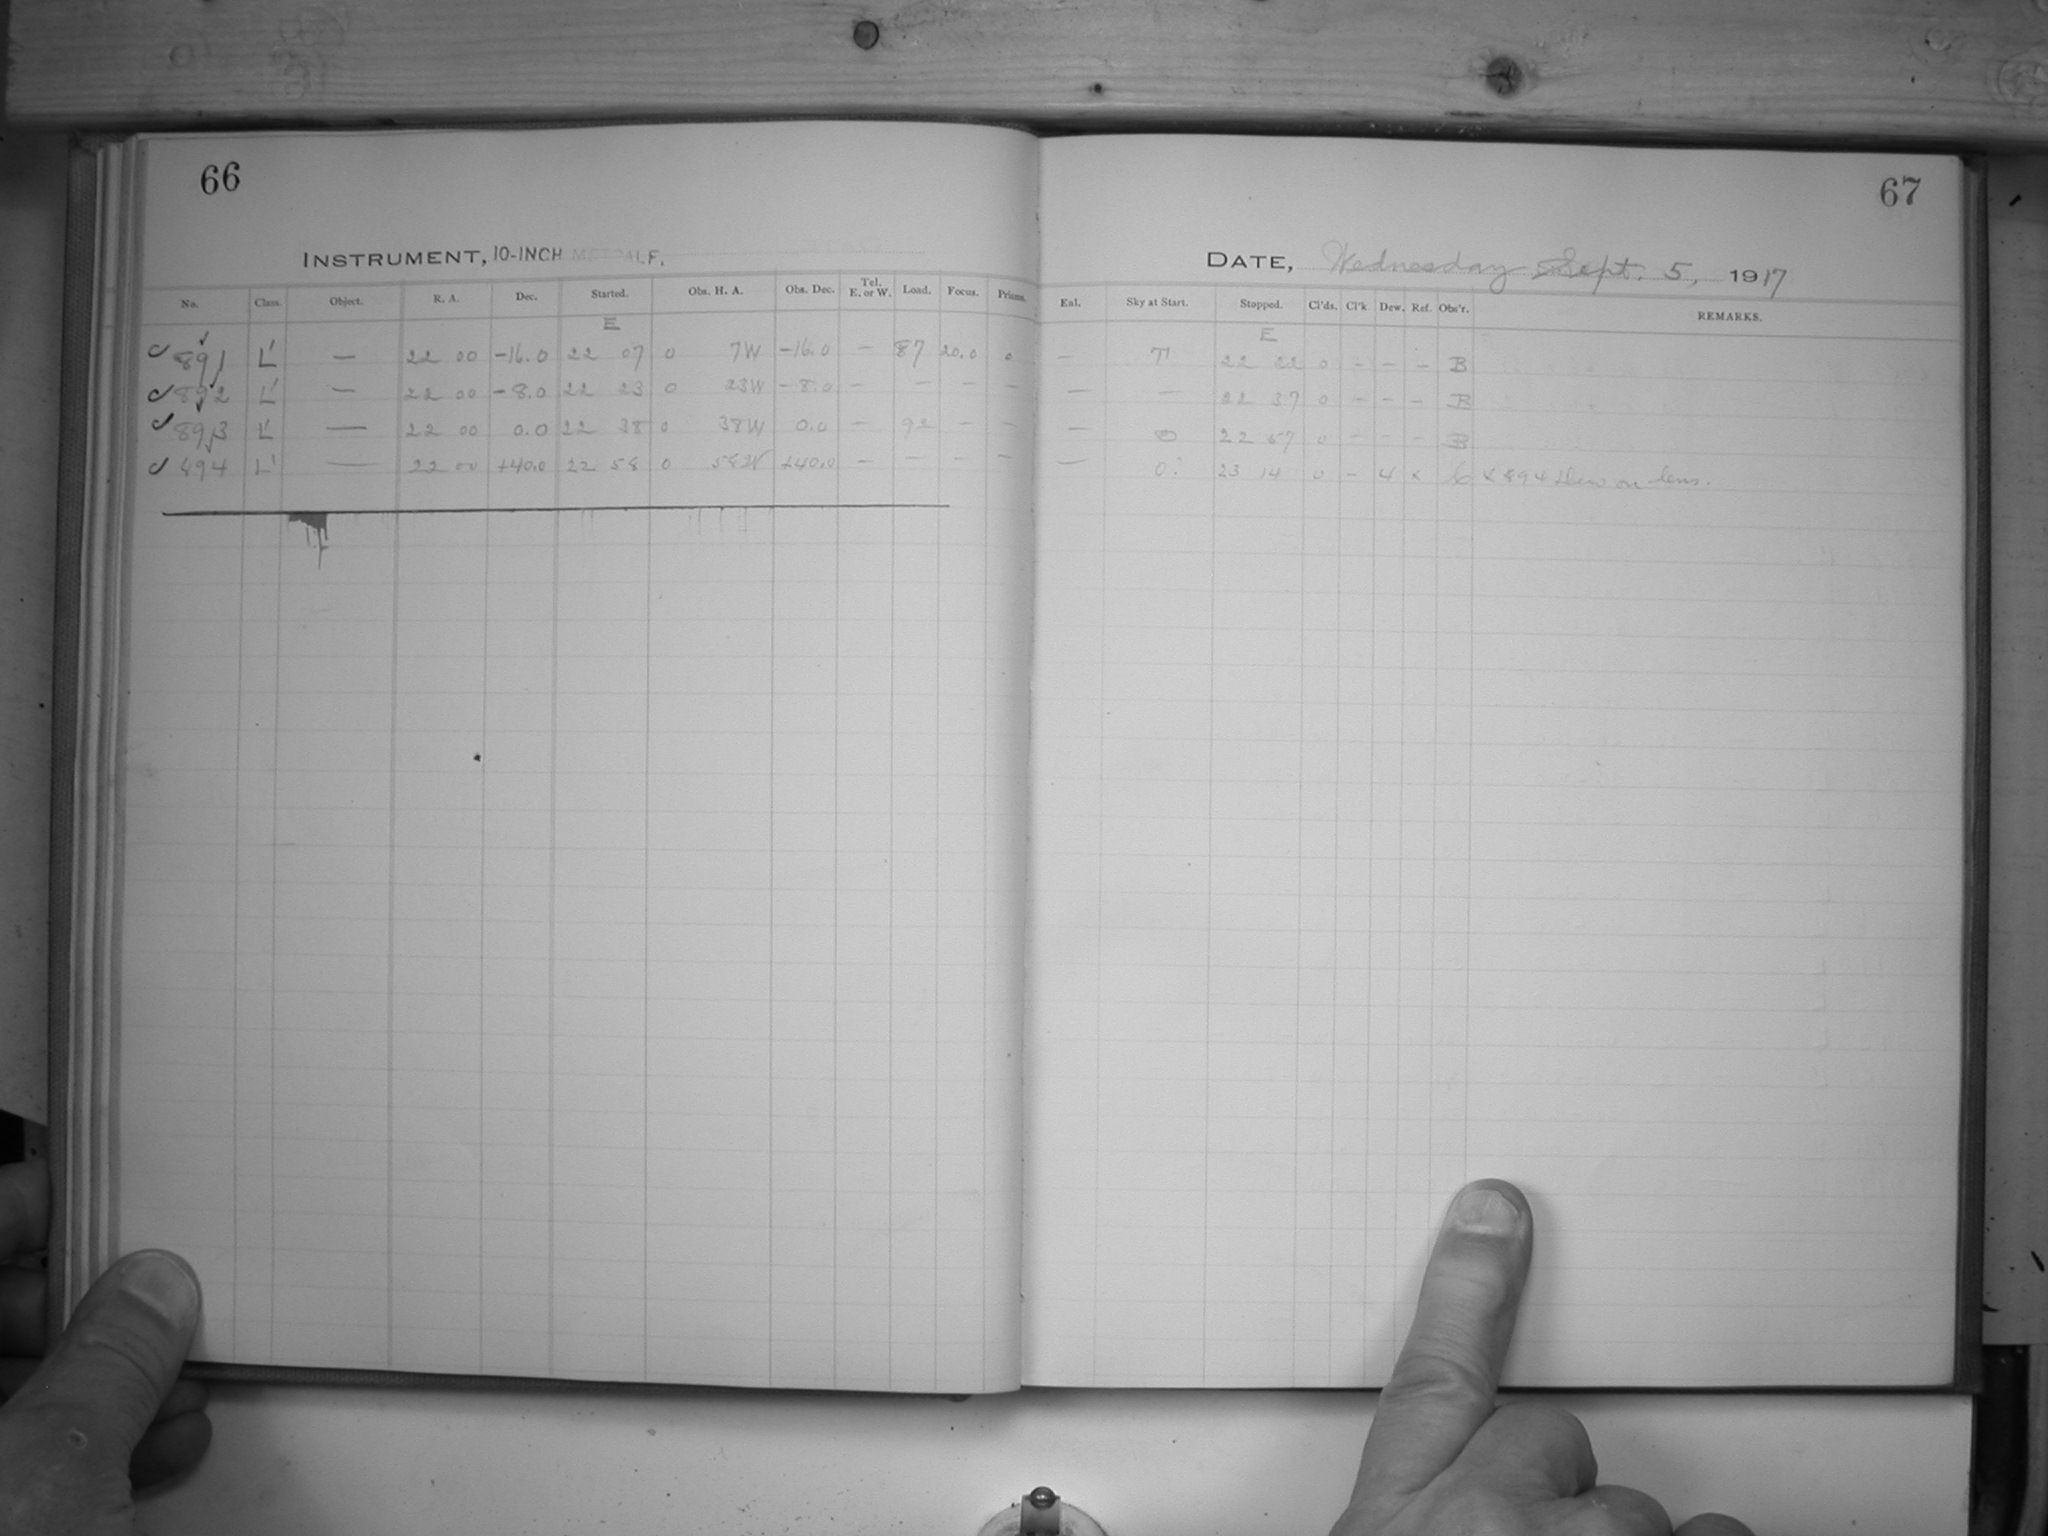 66
INSTRUMENT, 10-INCH METCALF.
No. Class. Object. R. A. Dec. Started. Obs. H. A. Obs. Dec. Tel. E. or W. Load. Focus. Prisms.
E
891 L' — 22 00 -16.0 22 07 0 7W -16.0 — 87 20.0 0
892 L' — 22 00 -8.0 22 23 0 23W -8.0 — — — —
893 L' — 22 00 0.0 22 38 0 38W 0.0 — 92 — —
894 L' — 22 00 +40.0 22 58 0 58W +40.0 — — — —
67
DATE, Wednesday Sept. 5, 1917
Enl. Sky at Start. Stopped. Cl'ds. Cl'k. Dew. Ref. Obs'r. REMARKS.
E
— 22 22 0 - - - B
— — 22 37 0 - - - B
— 0 22 57 0 - - - B
— 0? 23 14 0 - 4 x x 894 Dew on lens.